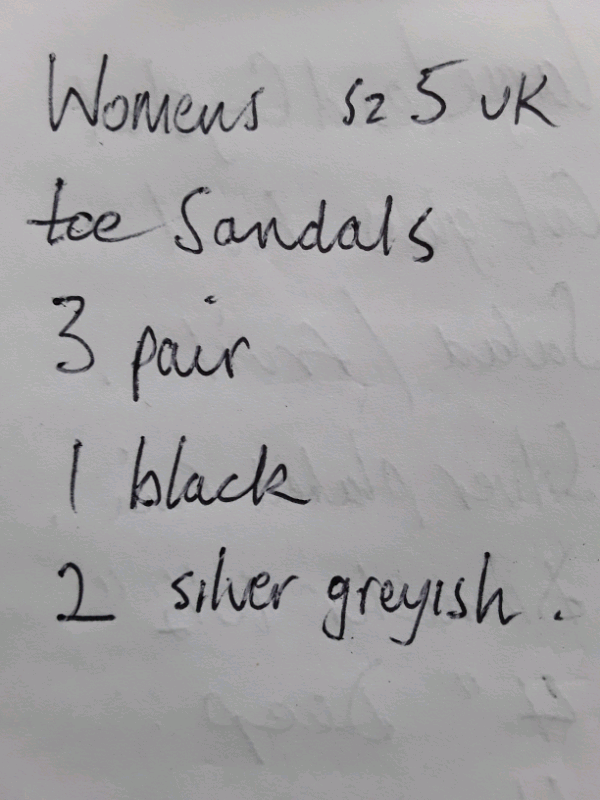 Womens sz 5 UK
toe Sandals
3 pair
1 black
2 silver greyish.